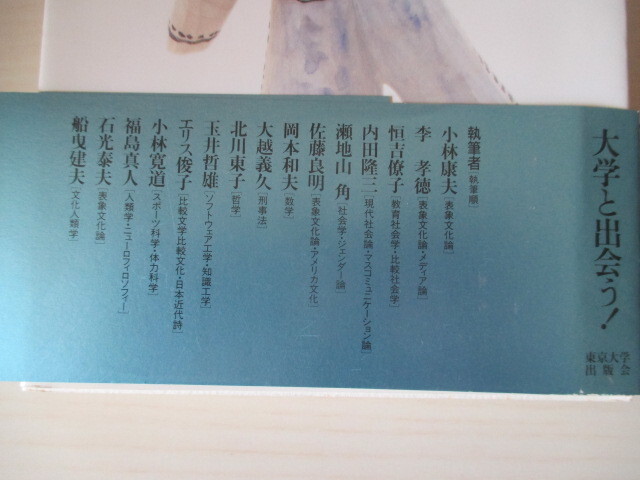 大学と出会う!
東京大学
出版会
執筆者[執筆順]
小林康夫[表象文化論]
李 孝徳[表象文化論・メディア論]
恒吉僚子[教育社会学・比較社会学]
内田隆三[現代社会論・マスコミュニケーション論]
瀬地山 角[社会学・ジェンダー論]
佐藤良明[表象文化論・アメリカ文化]
岡本和夫[数学]
大越義久[刑事法]
北川東子[哲学]
玉井哲雄[ソフトウェア工学・知識工学]
エリス俊子[比較文学比較文化・日本近代詩]
小林寛道[スポーツ科学・体力科学]
福島真人[人類学・ニューロフィロソフィー]
石光泰夫[表象文化論]
船曳建夫[文化人類学]